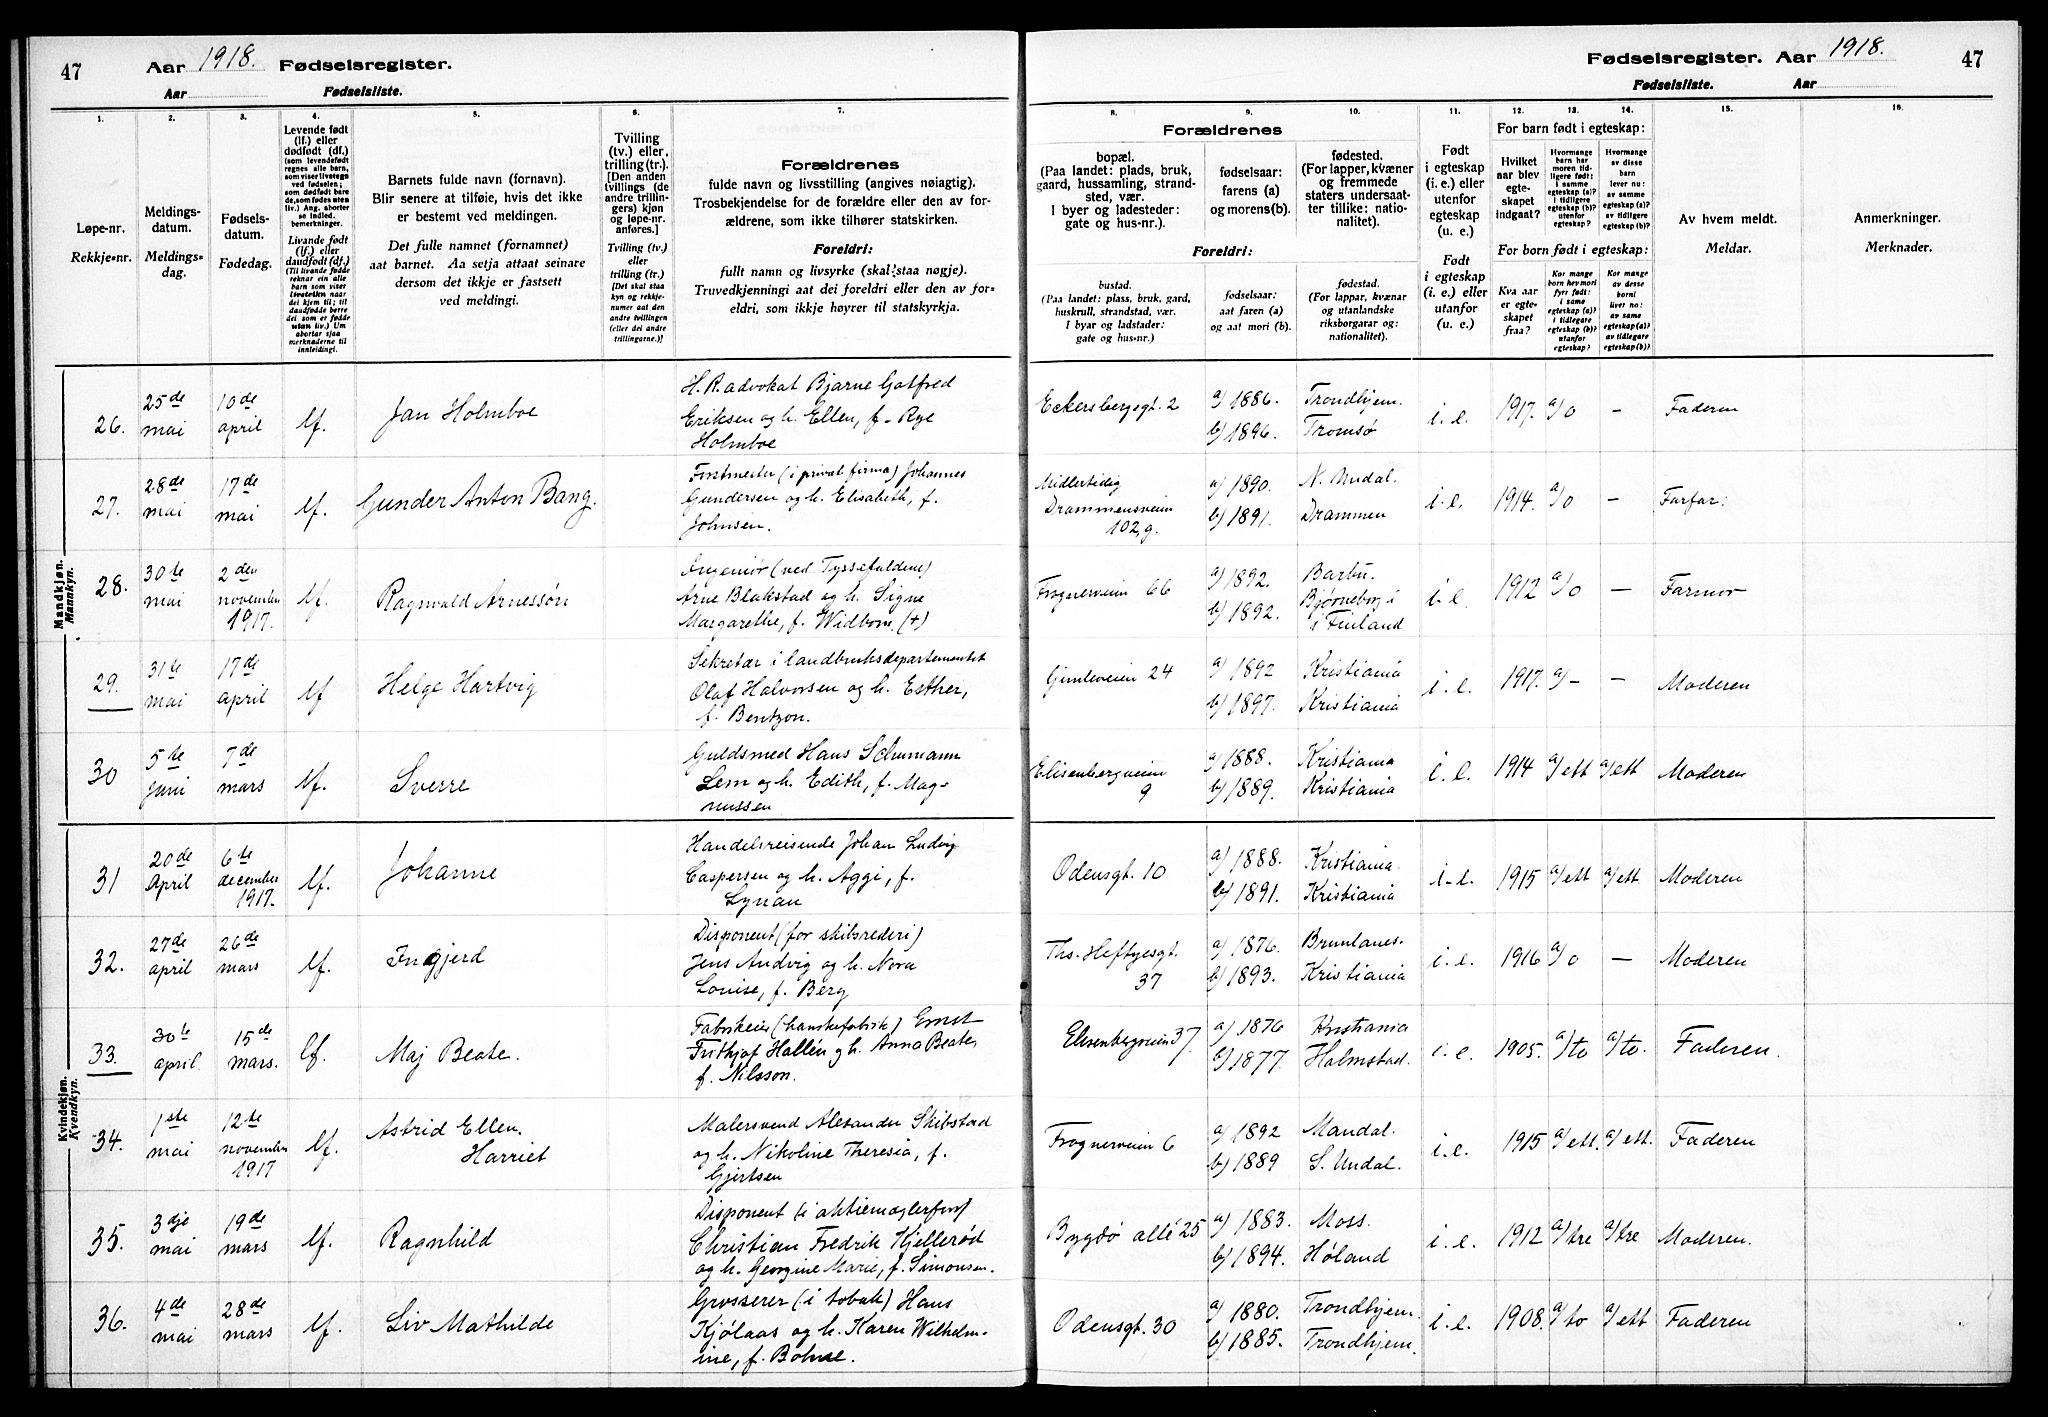 47
Aar 1918. Fødselsregister.
Aar Fødselsliste.
1.
Løpe-nr.
Rekkje-nr.
2.
Meldings-
datum.
Meldings-
dag.
3.
Fødsels-
datum.
Fødedag.
4.
Levende født
(lf.) eller
dødfødt (df.)
(som levendefødt
regnes alle barn,
som viser livstegn
ved fødselen;
som dødfødt bare
de, som fødes uten
liv.) Ang. aborter
se indled.
bemerkninger.
Livande født
(lf.) eller
daudfødt (df.)
(Til livande fødde
reknar ein alle
born som viser
livsteikn naar
dei kjem til; til
daudfødde berre
dei som er fødde
utan liv.) Um
abortar sjaa
merknaderne til
innleidingi.
5.
Barnets fulde navn (fornavn).
Blir senere at tilføie, hvis det ikke
er bestemt ved meldingen.
Det fulle namnet (fornamnet)
aat barnet. Aa setja attaat seinare
dersom det ikkje er fastsett
ved meldingi.
6.
Tvilling
(tv.) eller,
trilling (tr.).
[Den anden
tvillings (de
andre trillin-
gers) kjøn
og løpe-nr.
anføres.]
Tvilling (tv.)
eller
trilling (tr.)
[Det skal staa
kyn og rekkje-
numer aat den
andre tvillingen
(eller dei andre
trillingarne.)]
7.
Forældrenes
fulde navn og livsstilling (angives nøiagtig).
Trosbekjendelse for de forældre eller den av for-
ældrene, som ikke tilhører statskirken.
Foreldri:
fullt namn og livsyrke (skal staa nøgje).
Truvedkjenningi aat dei foreldri eller den av for-
eldri, som ikkje høyrer til statskyrkja.
Mandkjøn.
Mannkyn.
26. 25de mai 10de april lf. Jan Holmboe H. R. advokat Bjarne Gotfred
Eriksen og h. Ellen, f. Rye
Holmboe
27. 28de mai 17de mai lf. Gunder Anton Bang. Forstmester (i privat firma) Johannes
Gundersen og h. Elisabeth, f.
Johnsen.
28. 30te mai 2den november 1917. lf. Ragnvald Arnessøn Ingeniør (ved Tyssefaldene)
Arne Blakstad og h. Signe
Margarethe, f. Widbom. (+)
29. 31te mai 17de april lf Helge Hartvig Sekretær i landbruksdepartementet
Olaf Halvorsen og h. Esther,
f. Bentzon.
30 5te juni 7de mars lf. Sverre Guldsmed Hans Schumann
Lem og h. Edith, f. Mag-
nussen
Kvindekjøn.
Kvendkyn.
31 20de April 6te december 1917. lf. Johanne Handelsreisende Johan Ludvig
Caspersen og h. Aggi, f.
Lynau
32. 27de april 26de mars lf. Ingjerd Disponent (for skibsrederi)
Jens Andvig og h. Nora
Louise, f. Berg
33. 30te april. 15de mars. lf. Maj Beate. Fabrikeier (hanskefabrik) Ernst
Frithjof Hallén og h. Anna Beate,
f. Nilsson.
34. 1ste mai 12te november 1917 lf. Astrid Ellen
Harriet Malersvend Alexander Skibstad
og h. Nikoline Theresia, f.
Gjertsen
35. 3dje mai 19de mars lf. Ragnhild Disponent (i aktiemaglerforr)
Christian Fredrik Kjellerød
og h. Georgine Marie, f. Simonsen.
36. 4de mai 28de mars lf. Liv Mathilde Grosserer (i tobak) Hans
Kjølaas og h. Karen Wilhelm-
ine, f. Bohne.
Fødselsregister. Aar 1918.
47
Fødselsliste. Aar
8.
Forældrenes
bopæl.
(Paa landet: plads, bruk,
gaard, hussamling, strand-
sted, vær.
I byer og ladesteder:
gate og hus-nr.).
Foreldri:
bustad.
(Paa landet: plass, bruk, gard,
huskrull, strandstad, vær.
I byar og ladstader:
gate og hus-nr.)
9.
fødselsaar:
farens (a)
og morens (b).
fødselsaar:
aat faren (a)
og aat mori (b).
10.
fødested.
(For lapper, kvæner
og fremmede
staters undersaat-
ter tillike: natio-
nalitet).
fødestad.
(For lappar, kvænar
og utanlandske
riksborgarar og:
nationalitet).
11.
Født
i egteskap
(i. e.) eller
utenfor
egteskap
(u. e.)
Født
i egteskap
(i. e.) eller
utanfor
(u. e.)
12. 13. 14.
For barn født i egteskap:
Hvilket
aar blev
egte-
skapet
indgaat?
Hvormange
barn har
moren tid-
ligere født:
i samme
egteskap (a)?
i tidligere
egteskap (b)?
utenfor
egteskap?
Hvormange
av disse
barn
lever nu:
av samme
egteskap (a)?
av tidligere
egteskap (b)?
For born født i egteskap:
Kva aar
er egte-
skapet
fraa?
Kor mange
born hev mori
fyrr født:
i same
egteskap (a)?
i tidlegare
egteskap (b)?
utanfor
egteskap?
Kor mange
av desse
borni
liver no:
av same
egteskap (a)?
av tidlegare
egteskap (b)?
15.
Av hvem meldt.
Meldar.
16.
Anmerkninger.
Merknader.
Eckersbergsgt. 2 a) 1886. b) 1896. Trondhjem. Tromsø i. e. 1917. a/o – Faderen
Midlertidig
Drammensveien
102, g. a) 1890. b) 1891. N. Undal. Drammen i. e. 1914. a/o – Farfar:
Frognerveien 66 a) 1892. b) 1892. Barbu. Bjørneborg i
i Finland i. e. 1912 a/o – Farmor
Gimleveien 24 a) 1892 b) 1897. Kristiania Kristiania i. e. 1917. a/– – Moderen
Elisenbergveien
9 a) 1888. b) 1889. Kristiania Kristiania i. e. 1914 a/ett a/ett Moderen
Odensgt. 10 a) 1888. b) 1891. Kristiania. Kristiania i. e. 1915 a/ett a/ett Moderen
Ths. Heftyesgt.
37 a) 1876. b) 1893. Brunlanes. Kristiania i. e. 1916 a/o – Moderen
Elisenbergveien 37. a) 1876 b) 1877. Kristiania Halmstad. i. e. 1905. a/to a/to. Faderen.
Frognerveien 6 a) 1892 b) 1889 Mandal. S. Undal. i. e. 1915 a/ett. a/ett. Faderen
Bygdø allé 25 a) 1883. b) 1894. Moss. Høland i. e. 1912 a/tre a/tre Moderen.
Odensgt. 30 a) 1880. b) 1885. Trondhjem. Trondhjem. i. e. 1908. a/to a/ett Faderen